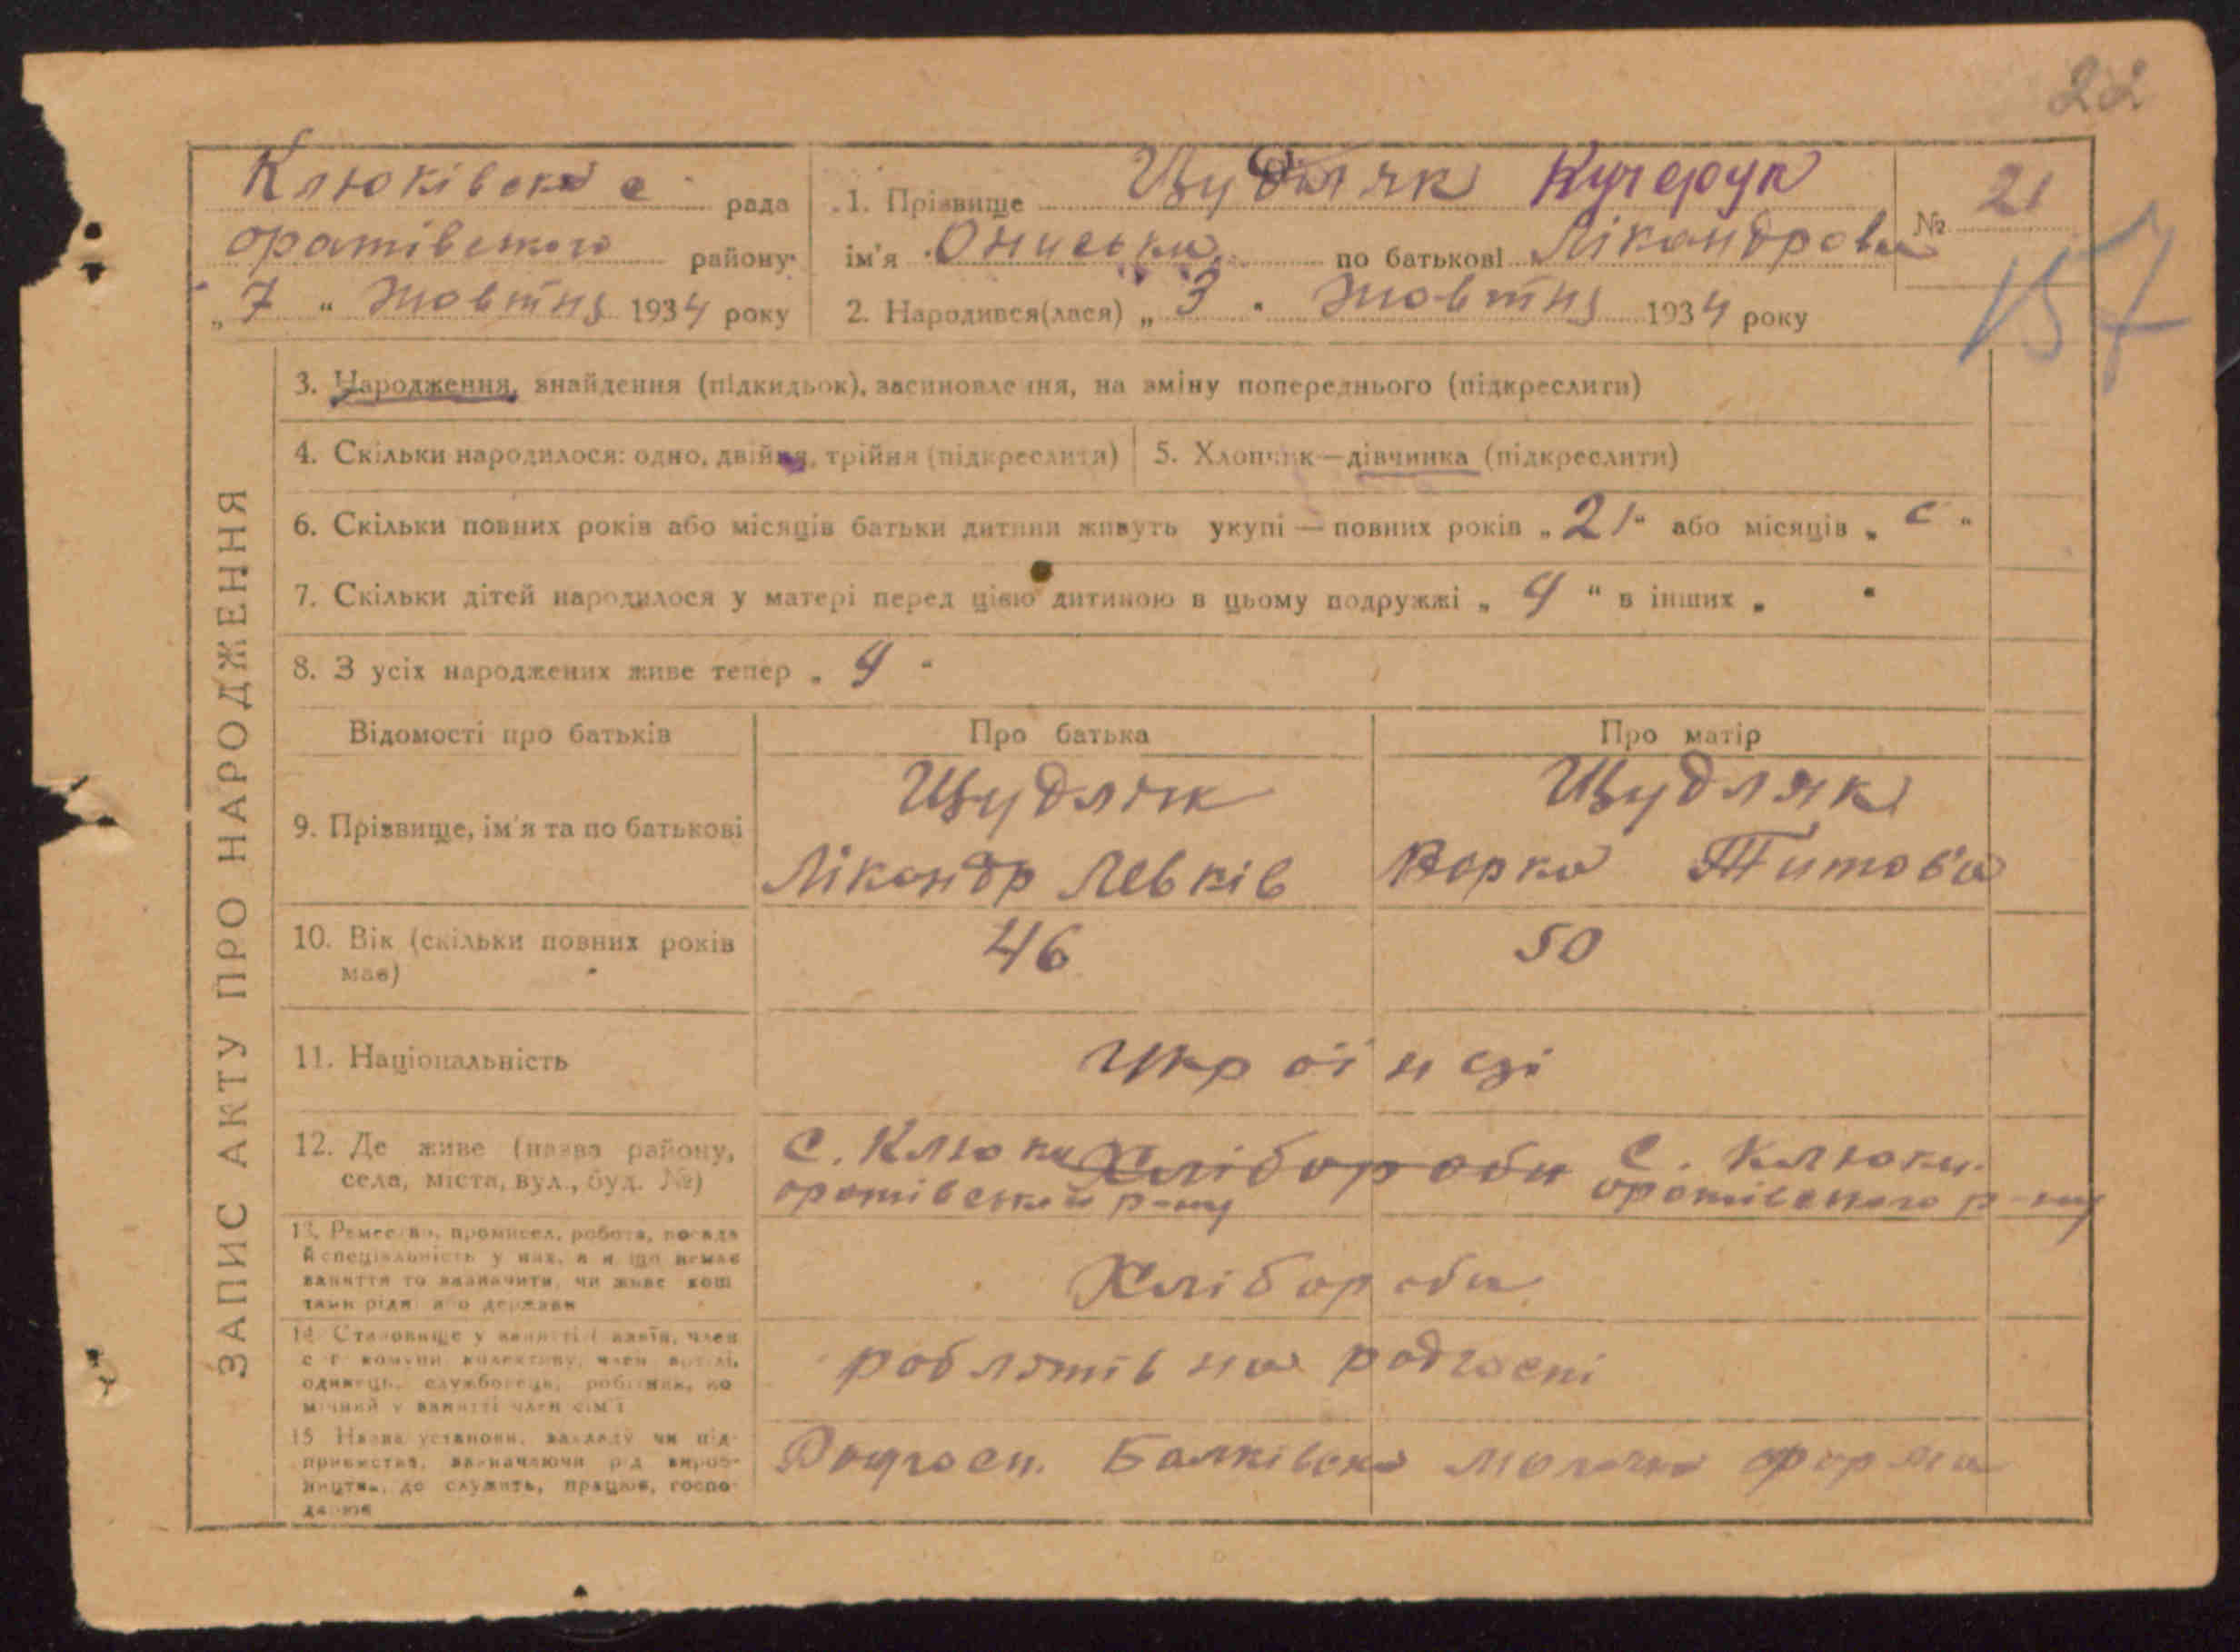 22
Клюківська с. рада
оратівського району
„ 7 “ жовтня 1934 року
1. Прізвище Цудляк Кучерук
ім'я Ониська по батькові Лікандрова
2. Народився(лася) „ 3 “ жовтня 1934 року
№ 21
157
ЗАПИС АКТУ ПРО НАРОДЖЕННЯ
3. Народження, знайдення (підкидьок), засиновлення, на зміну попереднього (підкреслити)
4. Скільки народилося: одно, двійня, трійня (підкреслити)
5. Хлопчик—дівчинка (підкреслити)
6. Скільки повних років або місяців батьки дитини живуть укупі — повних років „ 21 “ або місяців „ с “
7. Скільки дітей народилося у матері перед цією дитиною в цьому подружжі „ 4 “ в інших „ “
8. З усіх народжених живе тепер „ 4 “
Відомості про батьків Про батька Про матір
9. Прізвище, ім'я та по батькові
Цудляк
Лікандр Левків
Цудляк
Ворка Титов'а
10. Вік (скільки повних років має)
46 50
11. Національність
Українці
12. Де живе (назва району,
села, міста, вул., буд. №)
с. Клюки Хлібороби с. Клюки
оратівський р-ну оратівського р-ну
13. Ремество, промисел, робота, посада
й спеціяльність у них, а якщо немає
заняття то зазначити, чи живе кош
тами рідні або держави
Хлібороби
14. Становище у занятті (хазяїн, член
с г комуни, колективу, член артілі,
одинець, службовець, робітник, по
мічний у занятті член сім'ї
роблятів на радгоспі
15 Назва установи, закладу чи під-
приємства, зазначаючи рід вироб-
ництва, де служить, працює, госпо-
дарює
Радгосп. Балківська молочна ферма